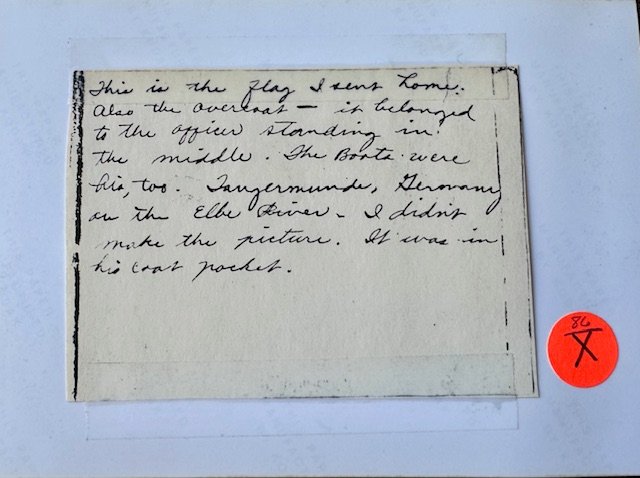 This is the flag I sent home.
Also the overcoat — it belonged
to the officer standing in
the middle. The Boots were
his, too. Tangermunde, Germany
on the Elbe River - I didn't
make the picture. It was in
his coat pocket.
86
X